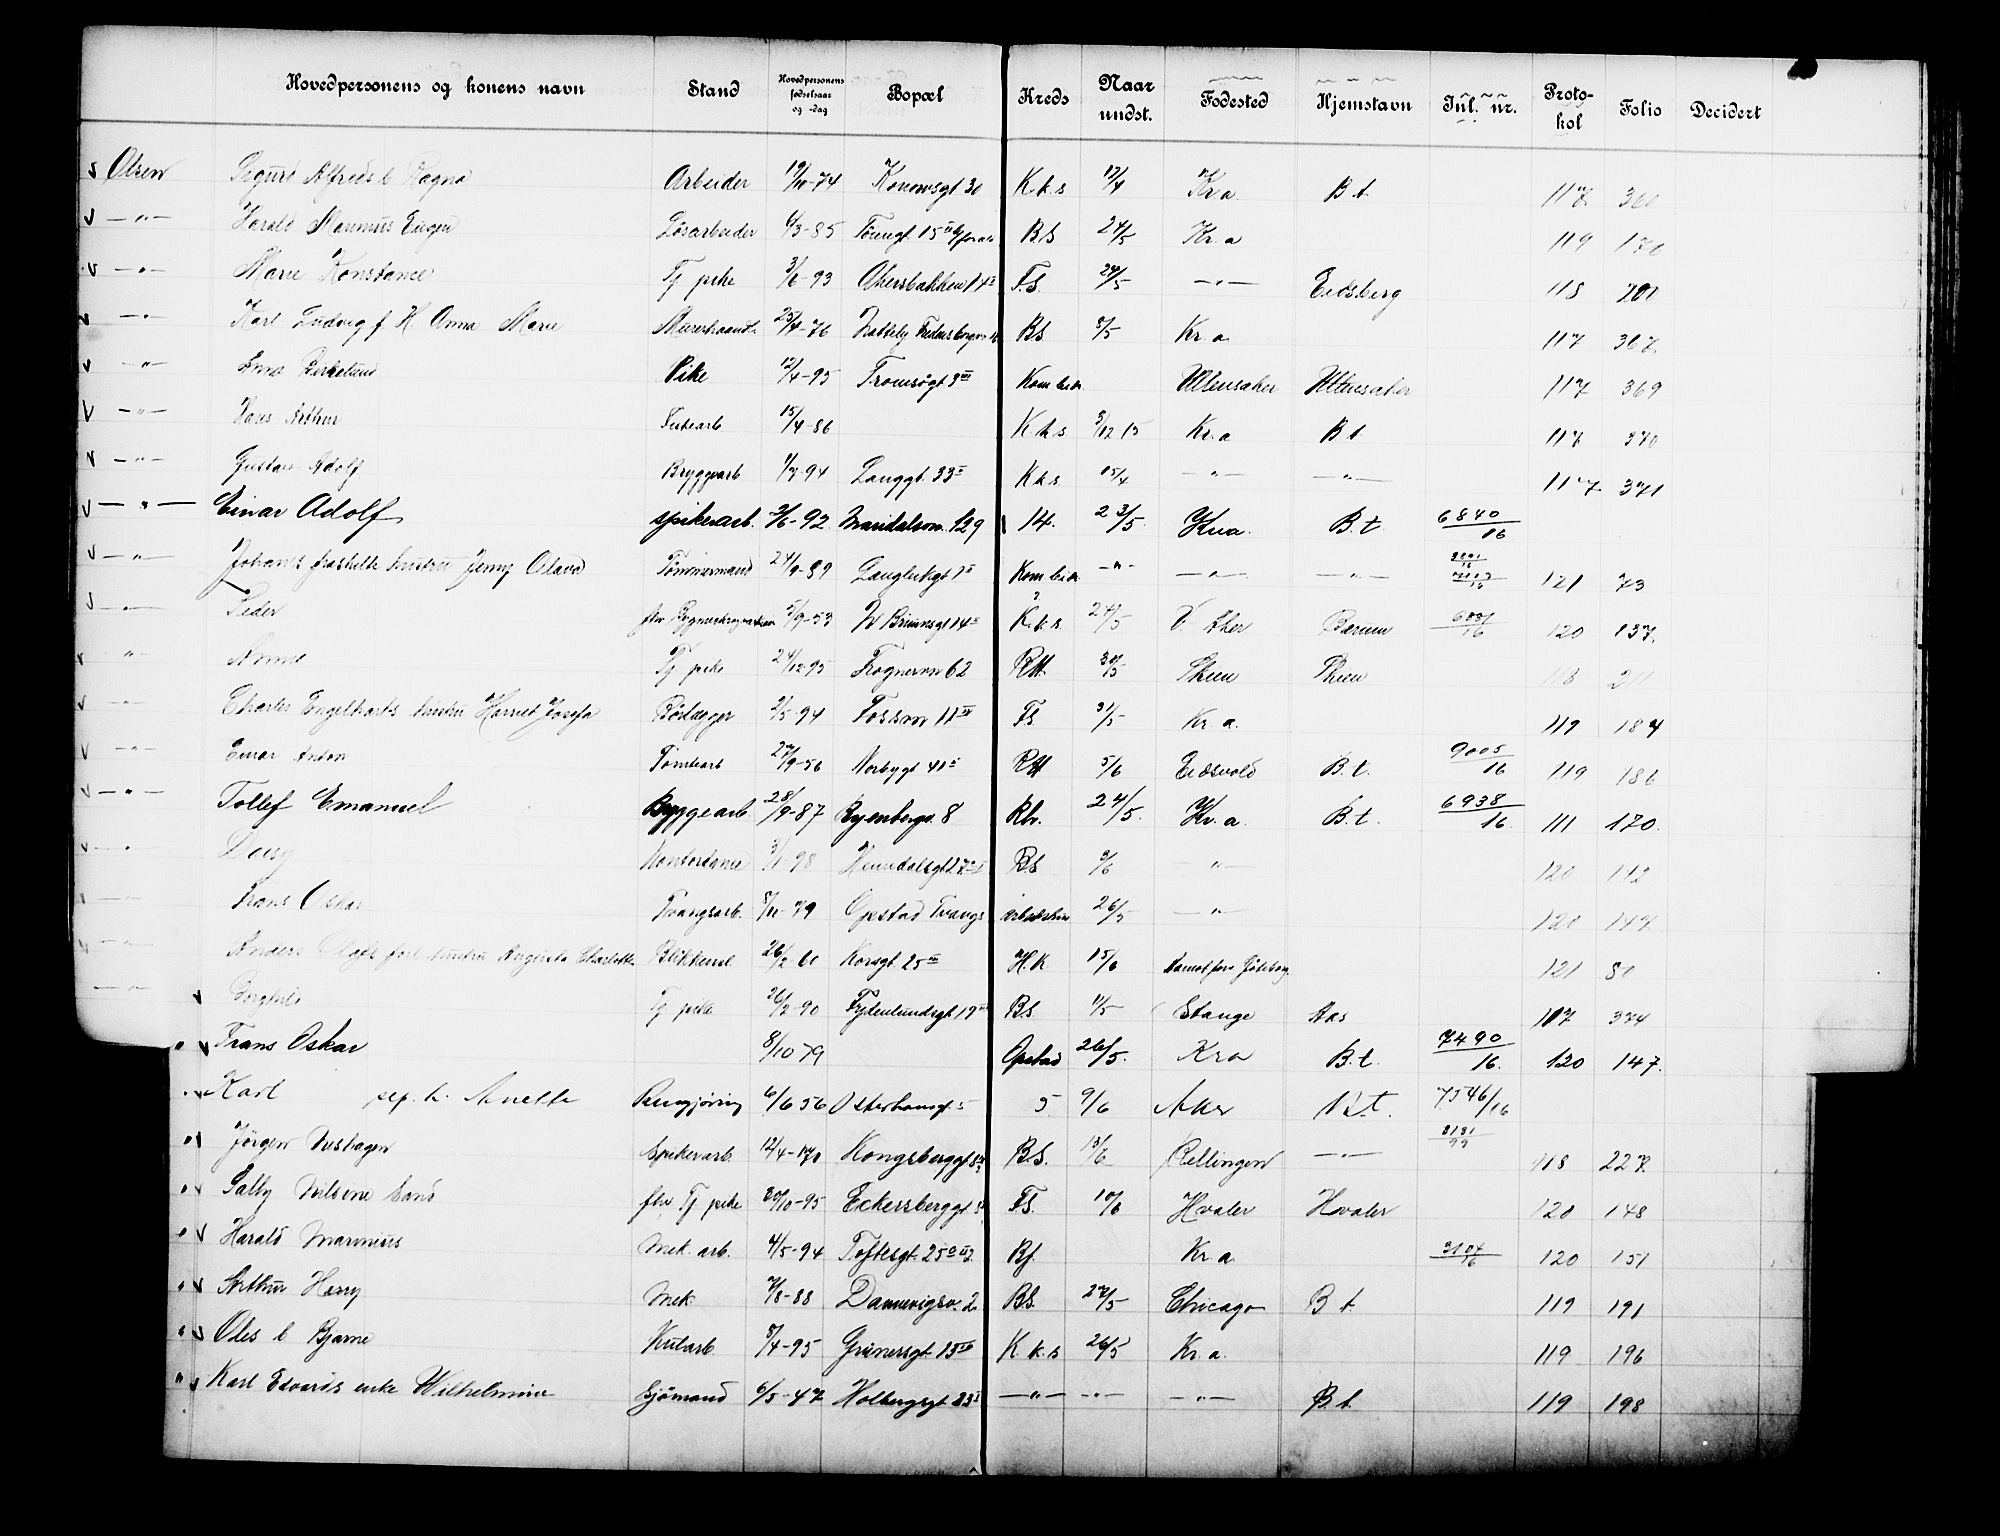 Hovedpersonens og konens navn Stand Hovedpersonens fødselsaar og -dag Bopæl Kreds Naar undst. Fødested Hjemstavn Inl. nr. Proto-kol Folio Decidert
Olsen Sigurd Alfreds Ragna Arbeider 19/10-74 Konowsgt 30 K.k.s 17/4 Kr.a B.t 117 360
—"— Harald Marinius Eugen Løsarbeider 4/3-85 BS 24/5 Kr.a 119 170
—"— Marie Konstance Tj pike 3/6-93 Akersbakken F.S. 24/5 —"— Eidsberg 118 201
—"— Karl Ludvig f H Anna Marie 25/4-76 BS 8/5 Kr.a 117 367
—"— Pike 12/4-95 Tromsøgt 3 III Kom.bidr Ullensaker Ullensaker 117 369
—"— Hans Arthur 15/4-86 K.k.s 5/12 15 Kr.a B.t 117 370
—"— Gustav Adolf Bryggearb 1/7-94 Langgt. 33 K.k.s. 15/4 —"— —"— 117 371
—"— Einar Adolf spikerarb. 3/6-92 Maridalsvn. 129 14. 23/5. Kria. B.t. 6840/16
—"— Johans fraskilte hustru Jenny Olava Tømmermand 24/9-89 Kom.bidr —"— —"— —"— 121 73
—"— Peder 3/9-53 Brunsgt 14 K.k.s. 24/5 V. Aker Bærum 6831/16 120 137.
—"— Tj pike 24/12-95 Frognervn 62 RH. 30/5 Skien Skien 118 211
—"— Charles Engelharts hustru Harriet Josefa Rørlægger 3/5-94 Fossvn 11 FS. 31/5 Kr.a. 119 184
—"— Einar Anton Tomtearb 27/9-56 Norbygt 41 RH 5/6 Eidsvold B.t. 9005/16 119 186
—"— Tollef Emanuel Byggearb 28/9-87 Ryenbergv. 8 Rh. 24/5. Kr.a. B.t. 6938/16. 111 170.
—"— Daisy Kontordame 3/1-98 BS 3/6 —"— 120 142
—"— Frans Oskar Tvangsarb. 8/10-79 Opstad Tvangs arbeidshus 26/5 —"— 120 147
—"— Anders Olafs forl. hustru Augusta Charlotte Blikkensl. 26/2-60 Korsgt. 25 III H.K 15/6 121 80
—"— Borghild Tj pike 26/2-90 Frydenlundsgt 19 BS. 11/5 Stange Aas 107 374
" Frans Oskar 8/10 79 Opstad 26/5. Kra B.t. 7490/16. 120 147.
Karl sep. h. Anette Rengjøring 6/6 56 Osterhausgt. 5 5 9/6 Aker B.t. 7546/16
" Jørgen Spikerarb. 12/4-70 Kongsberggt BS. 13/6 —"— 8181/99 118 227
" Tj pike 30/10-95 Eckersberggt FS. 10/6 Hvaler Hvaler 120 148
" Harald Marinius Mek. arb. 4/5-94 Toftesgt. 25 Bj. Kr.a. 3104/16 120 151
" Arthur Harry Mek. 7/8-88 Dannevigsv. 2. BS. 27/5 Chicago B.t. 119 191
" Oles e Bjarne Kularb 8/4-95 Grünersgt. 13 K.k.s 26/5 Kr.a. 119 196
" Karl Edvards enke Wilhelmine Sjømand 6/5-47 Holbergsgt. 23 —"— —"— —"— B.t. 119 198